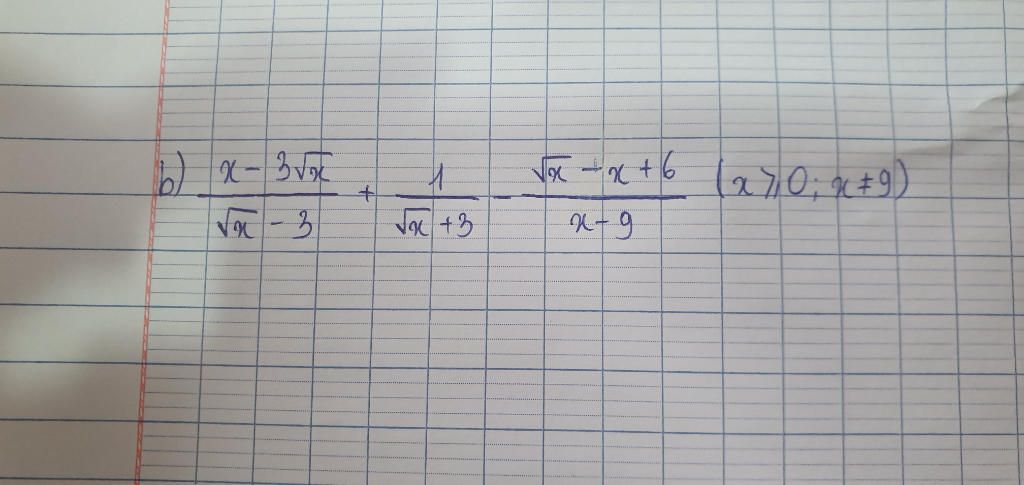 b) \frac{x - 3\sqrt{x}}{\sqrt{x} - 3} + \frac{1}{\sqrt{x} + 3} - \frac{\sqrt{x} - x + 6}{x - 9} (x ⩾ 0; x ≠ 9)